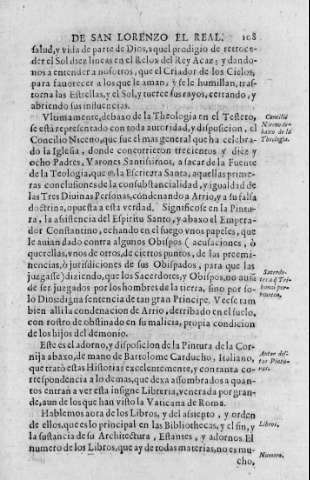 DE SAN LORENZO EL REAL. 108
salud, y vida de parte de Dios, aquel prodigio de retroce-
der el Sol diez lineas en el Relox del Rey Acaz; y dando-
nos a entender a nosotros, que el Criador de los Cielos,
para fauorecer a los que le aman, y se le humillan, tras-
torna las Estrellas, y el Sol, y tuerce sus rayos, cerrando, y
abriendo sus influencias.
Vltimamente, debaxo de la Theologia en el Testero,
se està representado con toda autoridad, y disposicion, el
Concilio Niceno, que fue el mas general que ha celebra-
do la Iglesia, donde concurrieron trecientos y diez y
ocho Padres, Varones Santissimos, a sacar de la Fuente
de la Teologia, que es la Escritura Santa, aquellas prime-
ras conclusiones de la consubstancialidad, y igualdad de
las Tres Diuinas Personas, condenando a Arrio, y a su falsa
doctrina, opuesta a esta verdad. Significose en la Pintu-
ra, la assistencia del Espiritu Santo, y abaxo el Empera-
dor Constantino, echando en el fuego vnos papeles, que
le auian dado contra algunos Obispos (acusaciones, ò
querellas, vnos de otros, de ciertos puntos, de las preemi-
nencias, ò jurisdiciones de sus Obispados, para que las
juzgasse) diziendo, que los Sacerdotes, y Obispos, no auian
de ser juzgados por los hombres de la tierra, sino por so-
lo Dios: digna sentencia de tan gran Principe. Veese tam
bien alli la condenacion de Arrio, derribado en el suelo,
con rostro de obstinado en su malicia, propia condicion
de los hijos del demonio.
Este es el adorno, y disposicion de la Pintura de la Cor-
nija abaxo, de mano de Bartolome Carducho, Italiano,
que tratò estas Historias excelentemente, y con tanta co-
rrespondencia a lo demas, que dexa assombrados a quan-
tos entran a ver esta insigne Libreria, venerada por gran-
de, aun de los que han visto la Vaticana de Roma.
Hablemos aora de los Libros, y del assiento, y orden
de ellos, que es lo principal en las Bibliothecas, y el fin, y
la sustancia de su Architectura, Estantes, y adornos. El
numero de los Libros, que ay de todas materias, no es mu-
cho,
Concilio
Niceno de-
baxo de la
Theologia.
Sacerdo-
Autor des-
tas Pintu-
ras.
Libros.
Numero.